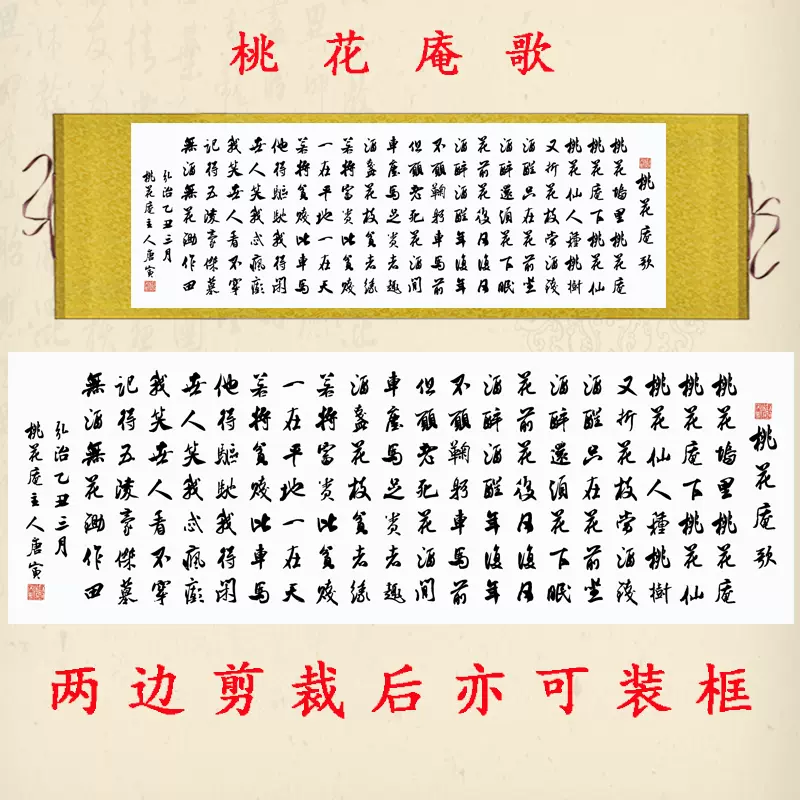 桃花庵歌
桃花庵歌
桃花塢里桃花庵
桃花庵下桃花仙
桃花仙人種桃樹
又折花枝當酒錢
酒醒只在花前坐
酒醉還須花下眠
花前花後日復日
酒醉酒醒年復年
不願鞠躬車馬前
但願老死花酒間
車塵馬足貴者趣
酒盞花枝貧者緣
若將富貴比貧賤
一在平地一在天
若將貧賤比車馬
他得驅馳我得閑
世人笑我忒瘋癲
我笑世人看不穿
記得五陵豪傑墓
無酒無花鋤作田
弘治乙丑三月
桃花庵主人唐寅
桃花庵歌
桃花塢里桃花庵
桃花庵下桃花仙
桃花仙人種桃樹
又折花枝當酒錢
酒醒只在花前坐
酒醉還須花下眠
花前花後日復日
酒醉酒醒年復年
不願鞠躬車馬前
但願老死花酒間
車塵馬足貴者趣
酒盞花枝貧者緣
若將富貴比貧賤
一在平地一在天
若將貧賤比車馬
他得驅馳我得閑
世人笑我忒瘋癲
我笑世人看不穿
記得五陵豪傑墓
無酒無花鋤作田
弘治乙丑三月
桃花庵主人唐寅
两边剪裁后亦可装框